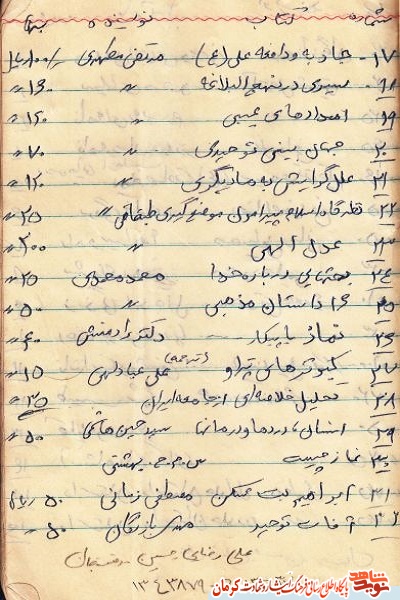 شماره کتاب نویسنده بها
۱۷- جاذبه و دافعه علی (ع) مرتضی مطهری ۱۰۰ ریال
۱۸ سیری در نهج البلاغه " ۱۳۰ "
۱۹ امدادهای غیبی " ۱۲۰ "
۲۰ جهان بینی توحیدی " ۷۰ "
۲۱ علل گرایش به مادیگری " ۱۲۰ "
۲۲ نظرگاه اسلام پیرامون موضع گیری طبقاتی " ۲۵ "
۲۳ عدل الهی " ۳۰۰ "
۲۴ بحثهایی درباره خدا محمد محمدی ۲۵ "
۲۵ داستان مذهبی " ۵۰ "
۲۶ نماز یا پیکار دکتر رادمنش ۶۰ "
۲۷ کبوترهای (ترجمه) علی ۱۵ "
۲۸ تحلیل خلاصه‌ای از جامعه ایران ۳۵ "
۲۹ انسان، دردها و درمانها سید حسین هاشمی ۵۰ "
۳۰ نماز چیست س.م.ح. بهشتی
۳۱ ابراهیم بت شکن مصطفی زمانی ۵۰ ریال
۳۲ آفات توحید مهدی بازرگان ۵۰ "
علی رضایی حسین
۱۳۶۳۸۷۹
نوید شاهد
پایگاه اطلاع رسانی فرهنگ ایثار و شهادت کرمان